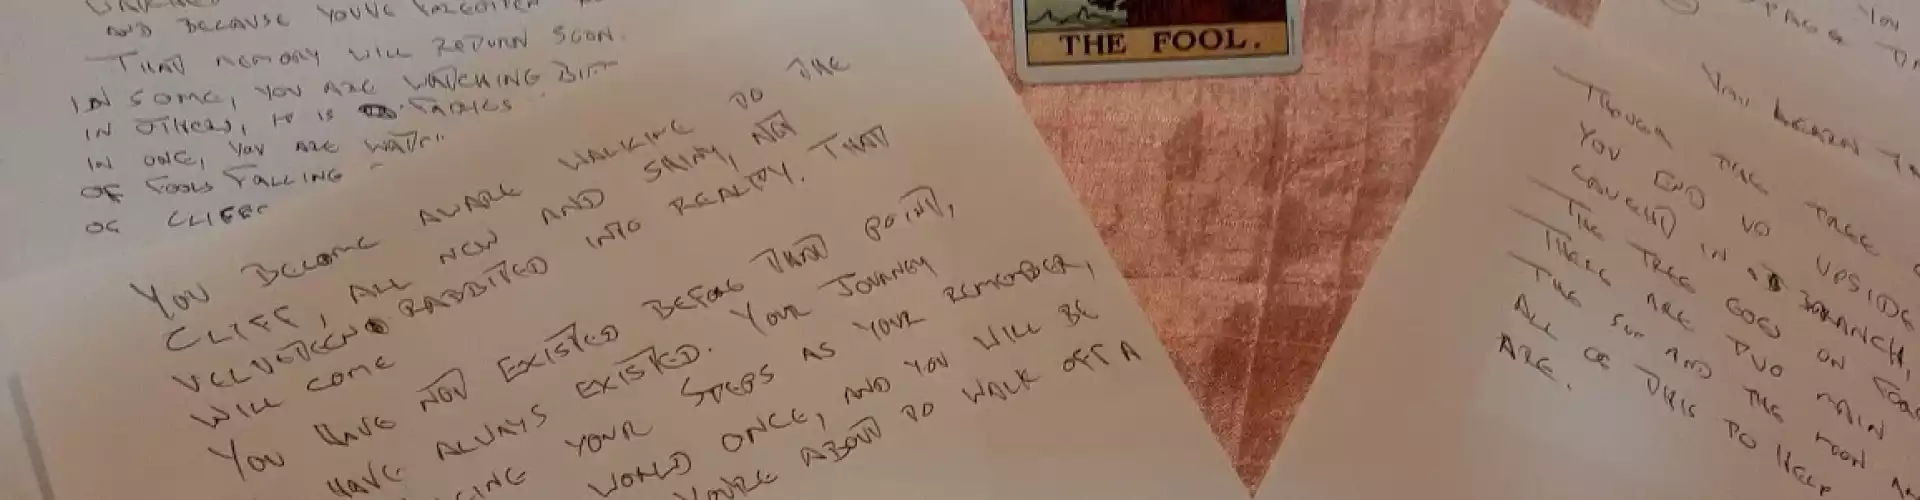 AND BECAUSE YOU'VE FORGOTTEN
THAT MEMORY WILL RETURN SOON.
IN SOME, YOU ARE WATCHING BIFF
IN OTHERS, IT IS
IN ONE, YOU ARE
OF FOOLS FALLING
OF CLIFFS
YOU BECOME AWARE WALKING TO THE
CLIFF, ALL NEW AND SHINY, NOT
VELVETEEN RABBITED INTO REALITY. THAT
WILL COME
YOU HAVE NOT EXISTED BEFORE THAT POINT,
HAVE ALWAYS EXISTED. YOUR JOURNEY
YOUR STEPS AS YOUR REMEMBER,
WORLD ONCE, AND YOU WILL BE
YOU'RE ABOUT TO WALK OFF A
THE FOOL.
YOU
PAGE
YOU LEARN
THOUGH THE TREE
YOU END UP UPSIDE
CAUGHT IN A BRANCH,
THE TREE GOES ON
THERE ARE TWO MAIN
THE SUN AND THE MOON
ALL OF THIS TO HELP
ARE.